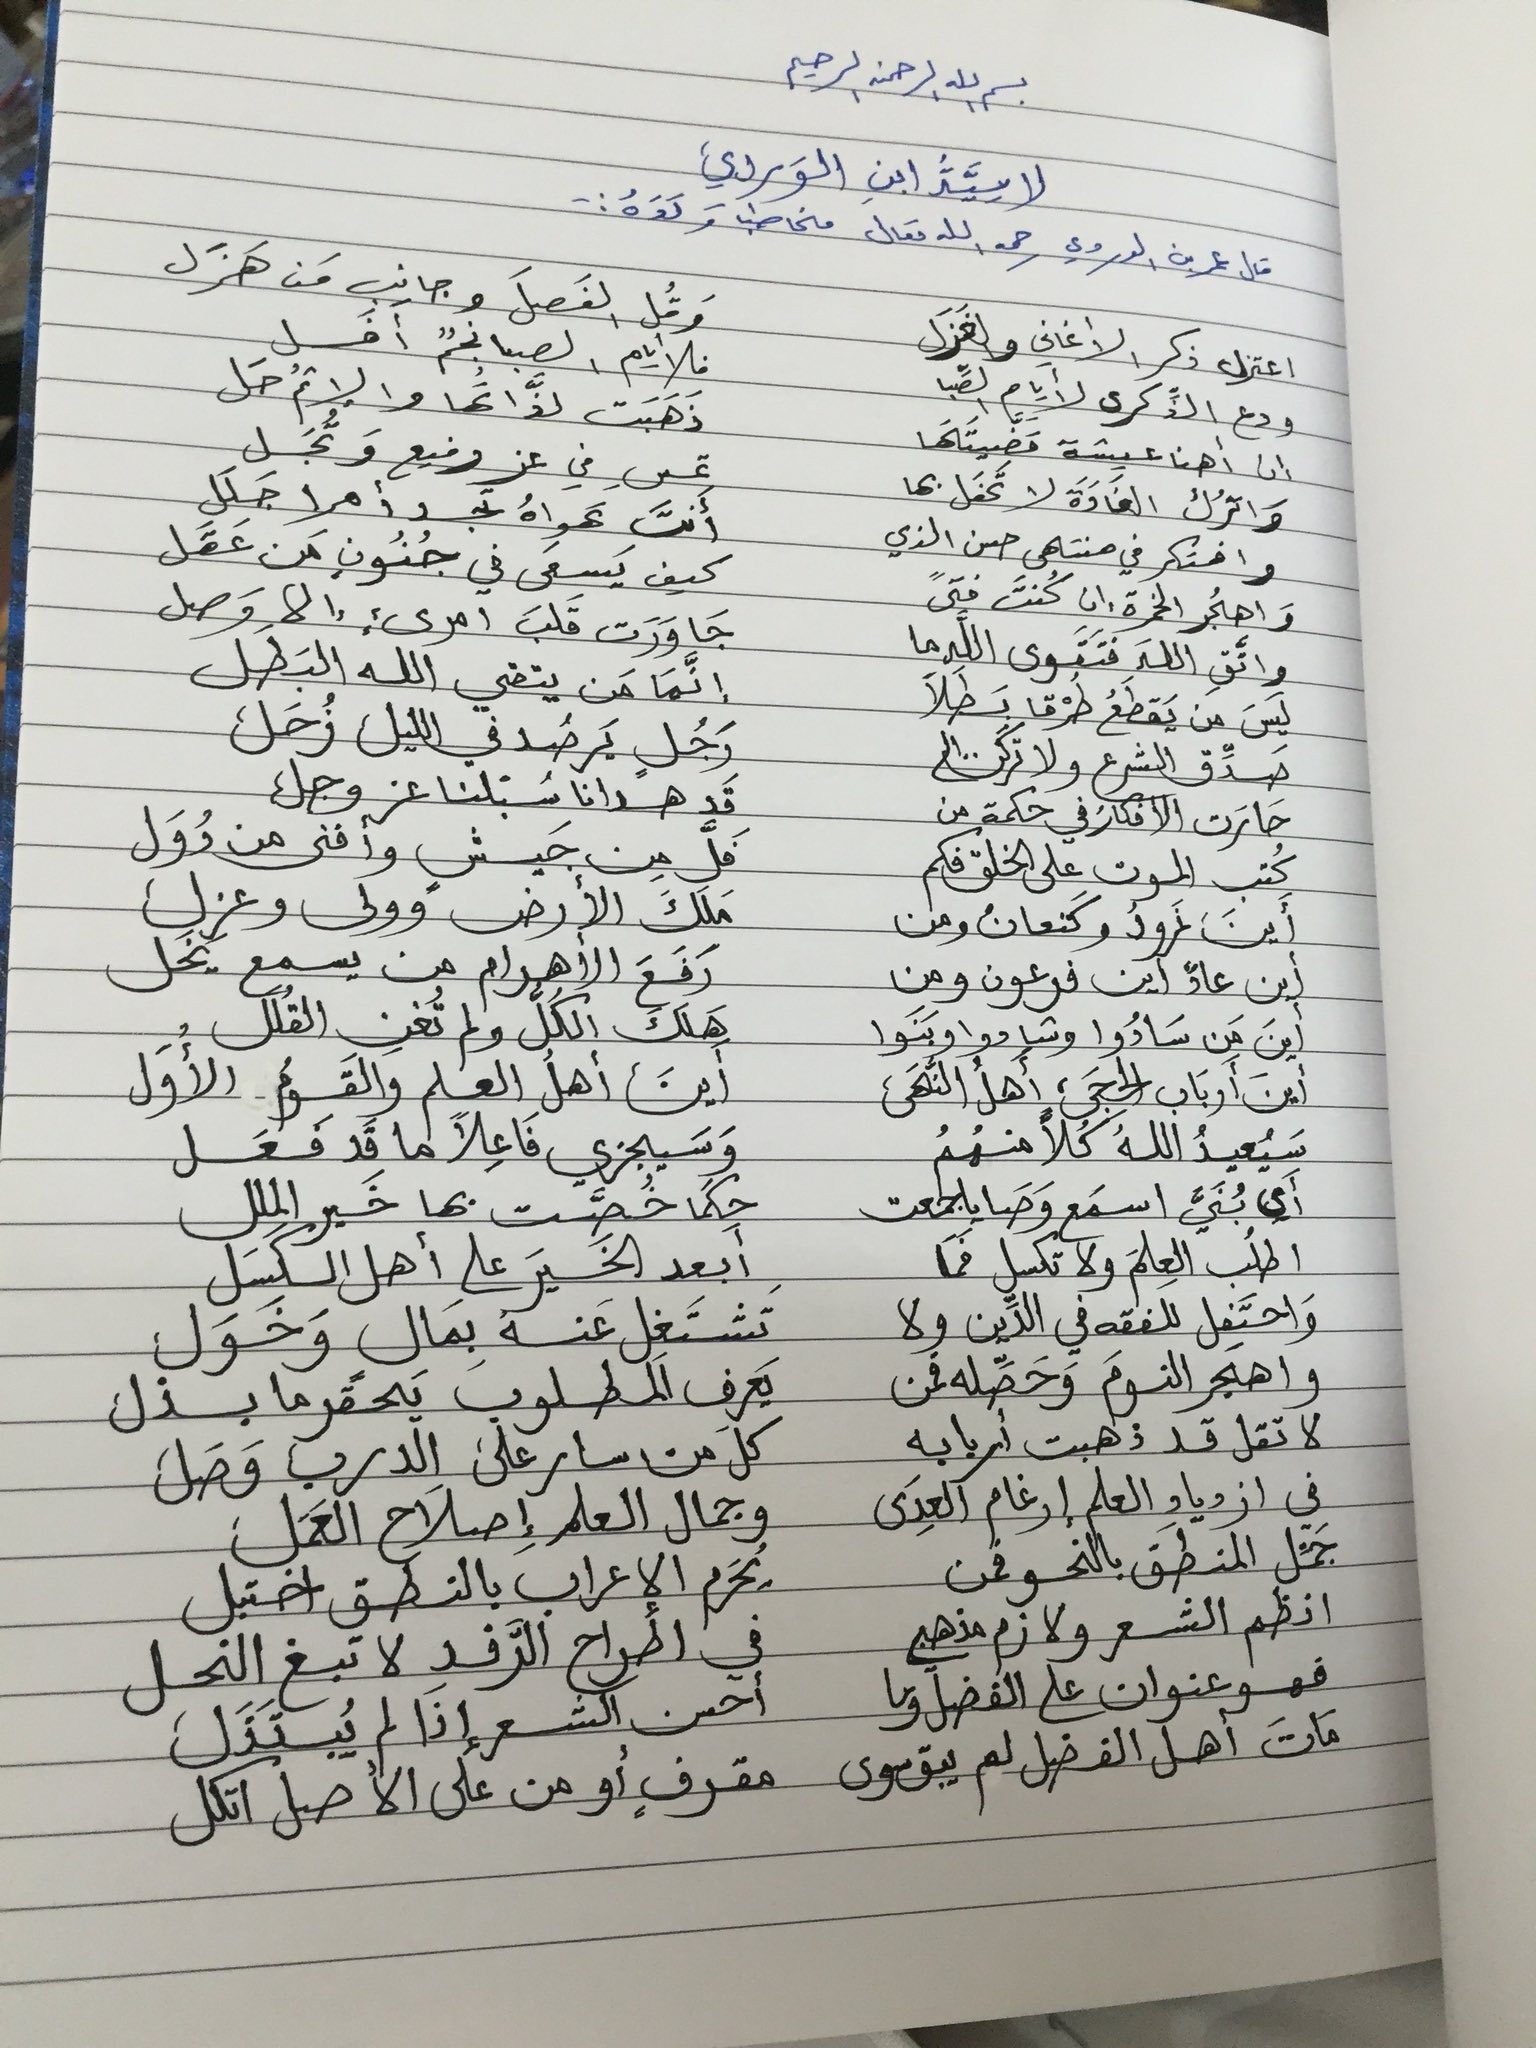 بسم الله الرحمن الرحيم
لامِيَّةُ ابنِ الوَردي
قال عمر بن الوردي رحمه الله تعالى مخاطبا وَلَدَهُ :-
اعتزل ذكر الأغاني والغَزَل وَقُل الفَصلَ وجانِب مَن هَزَل
ودع الذِّكرى لأيام الصِّبا فلأيام الصبا نجمٌ أَفَل
إن أهنا عيشة قَضَّيتَهَا ذَهَبَت لذَّاتُها والإثمُ حَل
وَاترُك الغَادَةَ لا تَحفَل بها تمسِ في عز رفيع وَتُجَل
وافتكر في منتهى حسن الذي أَنتَ تهواهُ تجد أمرا جَلَل
وَاهجُر الخمرة إن كُنتَ فتىً كيف يَسعَى في جُنُونٍ مَن عَقَل
واتَّقِ اللهَ فتَقوى اللهِ ما جَاوَرَت قَلبَ امرىءٍ إلا وَصل
لَيسَ من يَقطَعُ طُرْقا بَطَلاً إنَّمَا مَن يتقي الله البَطَل
صَدِّق الشرع ولا تركن إلى رَجُلٍ يَرصُد في الليل زُحَل
حَارَت الأفكارُ في حكمة من قَد هدانا سُبْلنا عز وجل
كُتب الموت على الخلق فكم فَلَّ مِن جَيشٍ وأفنى من دُوَل
أَينَ نَمرودُ وكَنعانُ ومن مَلَكَ الأرض وَولى وعزل
أين عادٌ أين فرعون ومن رَفَعَ الأهرام من يسمع يَخَل
أينَ مَن سَادُوا وشادوا وبَنَوا هَلَكَ الكُلُّ ولم تُغنِ القُلَل
أينَ أَربَاب الحِجَى أَهلُ النُّهَى أَينَ أهلُ العلم والقَومُ الأُوَل
سَيُعيدُ اللهُ كُلاً منهُمُ وَسَيجزي فَاعِلاً ما قَد فَعَل
أَي بُنَيَّ اسمَع وَصَايا جمعت حِكَمًا خُصَّت بها خَير المِلَل
اطلُب العِلمَ ولا تكسل فَمَا أَبعد الخَيرَ على أهل الكَسَل
وَاحتَفِل للفقه في الدِّين ولا تَشتَغِل عَنهُ بِمَال وَخَوَل
واهجر النومَ وَحَصِّله فمن يَعَرِف المطلوب يَحقُر ما بذل
لا تقل قد ذهبت أربابه كلُ من سار على الدرب وَصَل
في ازدياد العلم إرغام العِدَى وجمال العلم إصلَاح العَمَل
جَمِّل المنطق بالنحو فمن يُحرَم الإعراب بالنطق اختبل
انظم الشعر ولازم مذهبي في اطراح الرَّفد لا تبغ النحل
فهو عنوان على الفضل وما أحسن الشعر إذَا لم يُبتَذَل
مَاتَ أهل الفضل لم يبق سوى مقرفٍ أو من على الأصل اتكل